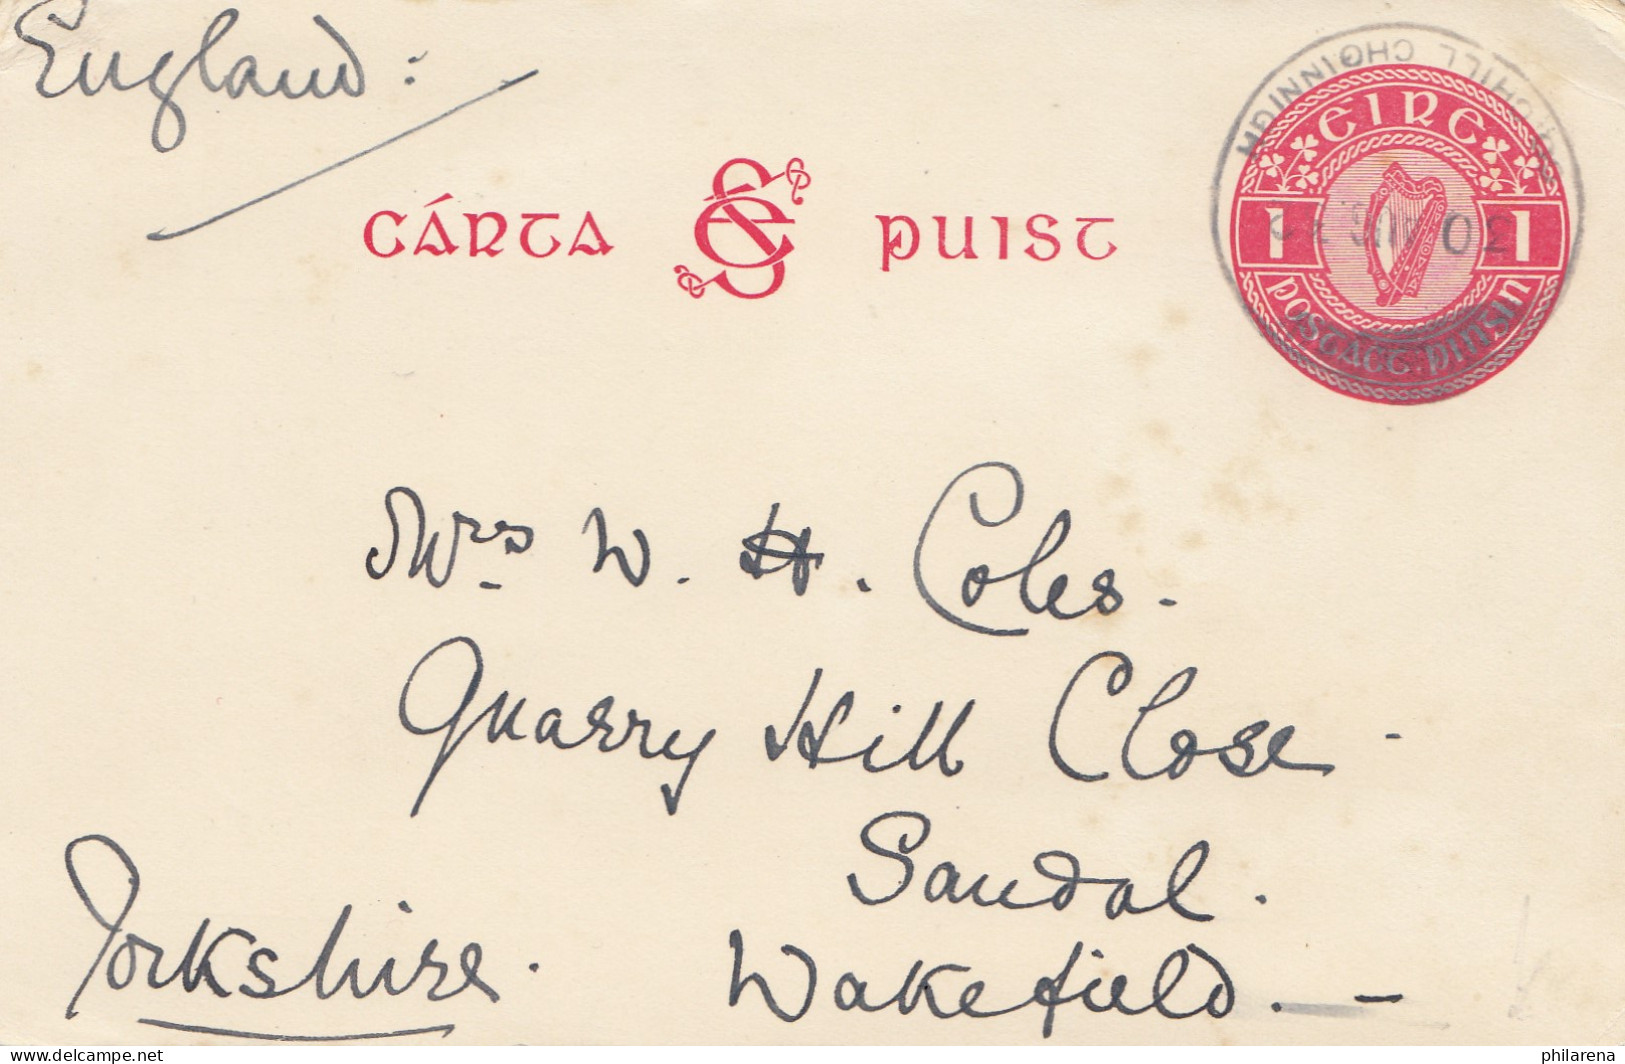 England:
CÁRTA PUIST
ÉIRE
1 1
POSTAGE PINSIN
CHILL CHOINNIGH
30
Mrs W. H. Coles.
Quarry Hill Close -
Sandal.
Wakefield. -
Yorkshire.
delcampe.net
philarena